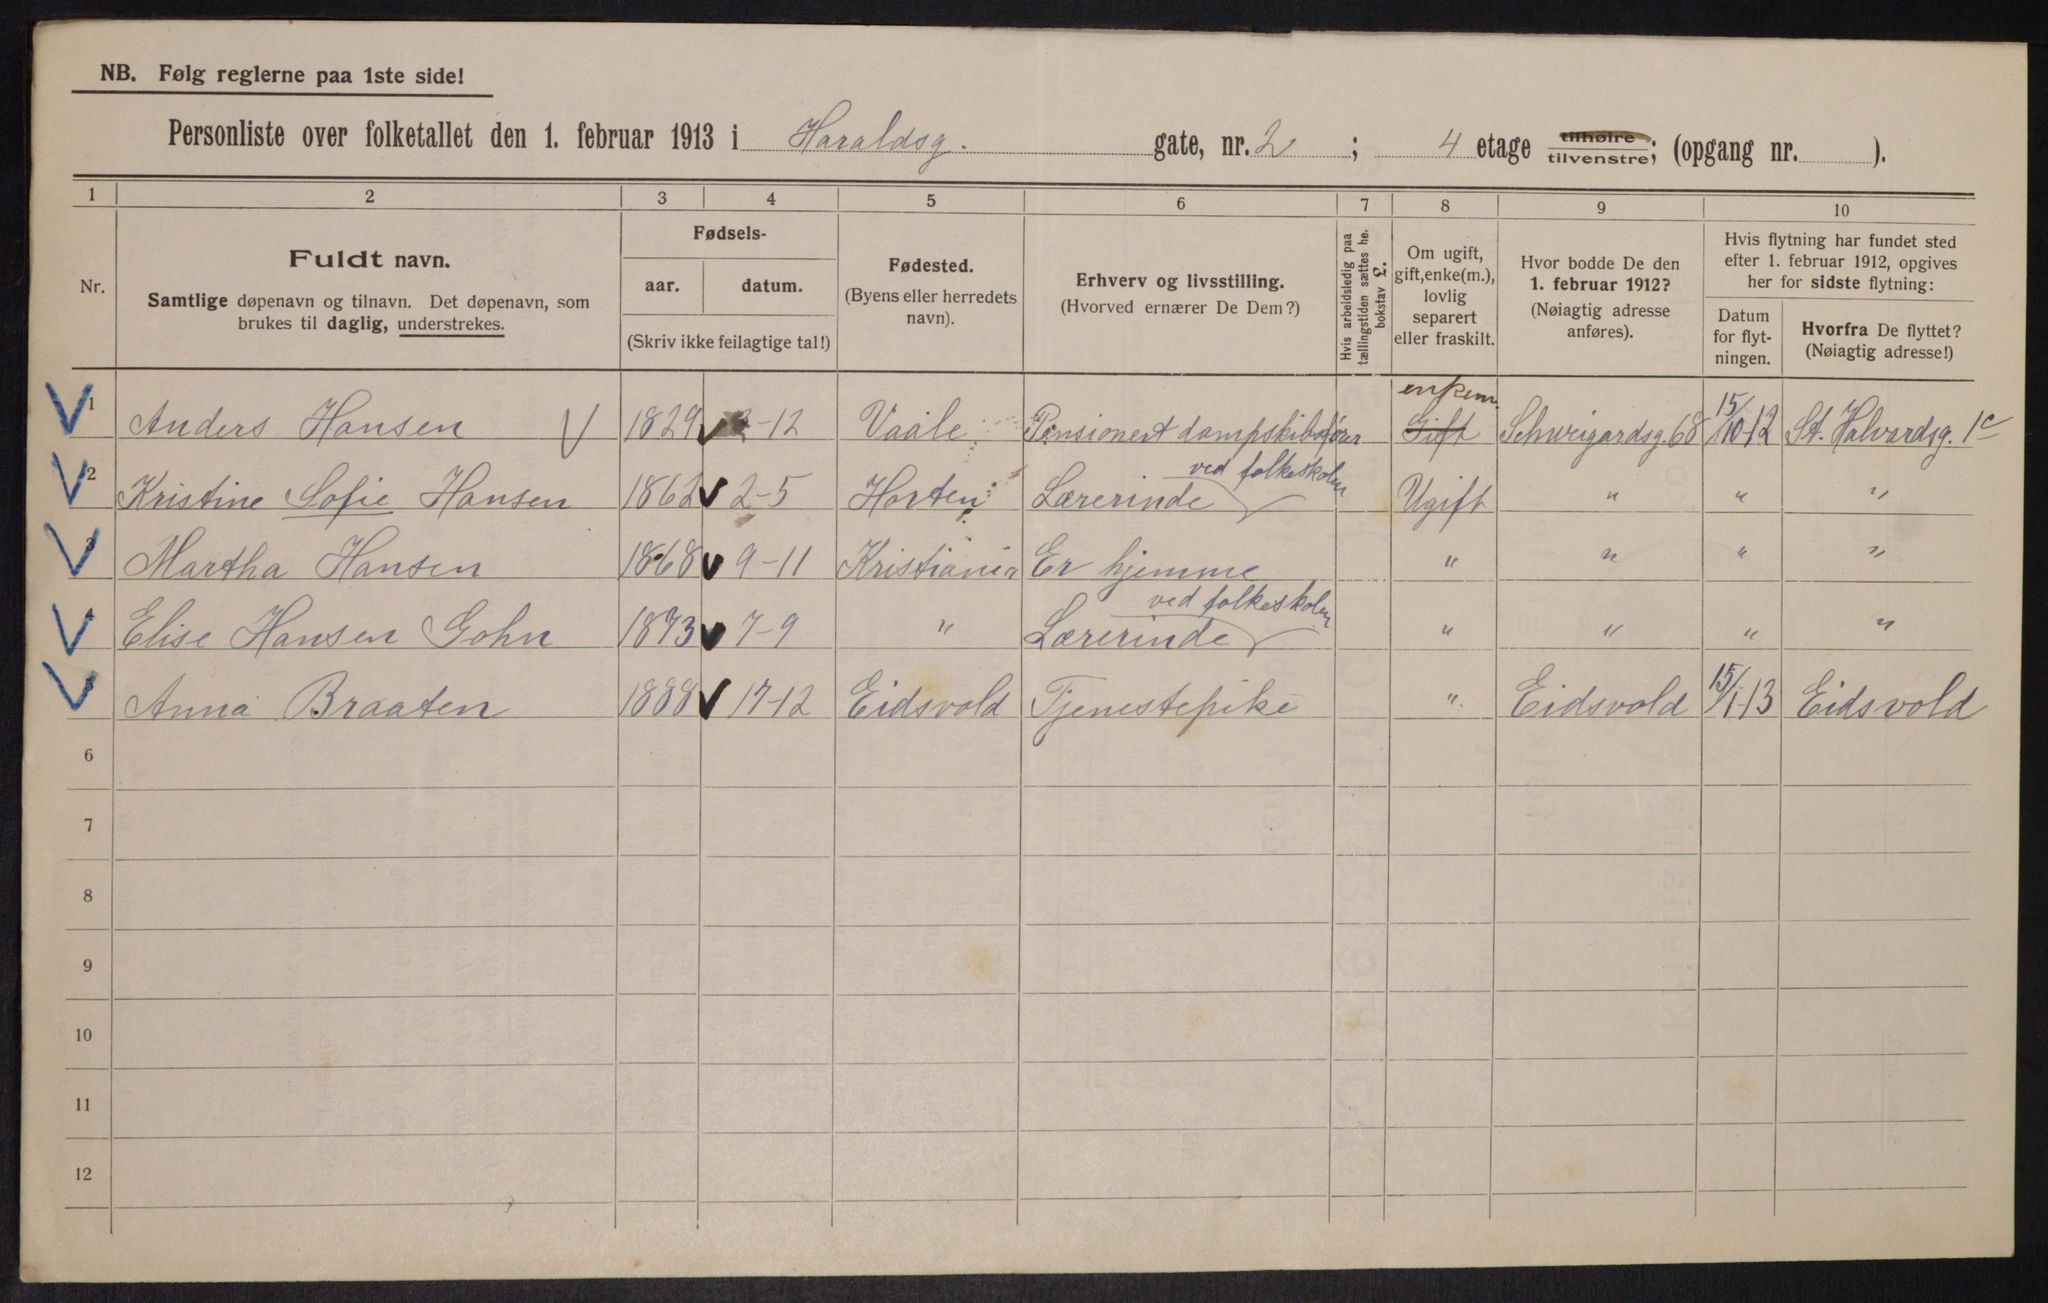 NB. Følg reglerne paa 1ste side!
Personliste over folketallet den 1. februar 1913 i Haraldsg. gate, nr. 2 ; 4 etage tilhøire tilvenstre; (opgang nr. ).
1 2 3 4 5 6 7 8 9 10
Nr.
Fuldt navn.
Samtlige døpenavn og tilnavn. Det døpenavn, som
brukes til daglig, understrekes.
Fødsels-
aar. datum.
(Skriv ikke feilagtige tal!)
Fødested.
(Byens eller herredets
navn).
Erhverv og livsstilling.
(Hvorved ernærer De Dem?)
Hvis arbeidsledig paa
tællingstiden sættes he.
bokstav £.
Om ugift,
gift, enke(m.),
lovlig
separert
eller fraskilt.
Hvor bodde De den
1. februar 1912?
(Nøiagtig adresse
anføres).
Hvis flytning har fundet sted
efter 1. februar 1912, opgives
her for sidste flytning:
Datum
for flyt-
ningen.
Hvorfra De flyttet?
(Nøiagtig adresse!)
enkem.
1 Anders Hansen 1829 -12 Vaale Pensionert dampskibsfører Gift Schweigardsg. 68 15/10-12 St. Halvardsg. 1c
ved folkeskolen
2 Kristine Sofie Hansen 1862 2-5 Horten Lærerinde Ugift " " "
3 Martha Hansen 1868 9-11 Kristiania Er hjemme " " " "
ved folkeskolen
4 Elise Hansen Gohn 1873 7-9 " Lærerinde " " " "
5 Anna Braaten 1888 17-12 Eidsvold Tjenestepike " Eidsvold 15/1-13 Eidsvold
6
7
8
9
10
11
12